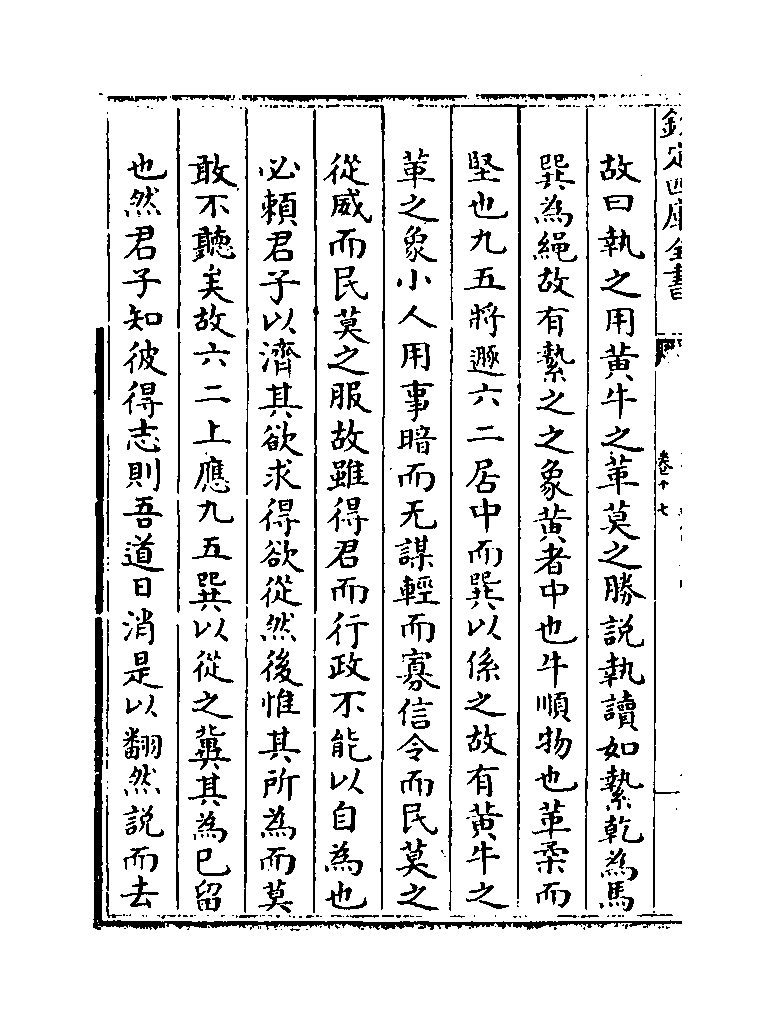 欽定四庫全書
卷十七
故曰執之用黃牛之革莫之勝說執讀如縶乾為馬
巽為繩故有縶之之象黃者中也牛順物也革柔而
堅也九五將遯六二居中而巽以係之故有黃牛之
革之象小人用事暗而无謀輕而寡信令而民莫之
從威而民莫之服故雖得君而行政不能以自為也
必賴君子以濟其欲求得欲從然後惟其所為而莫
敢不聽矣故六二上應九五巽以從之冀其為已留
也然君子知彼得志則吾道日消是以翻然説而去